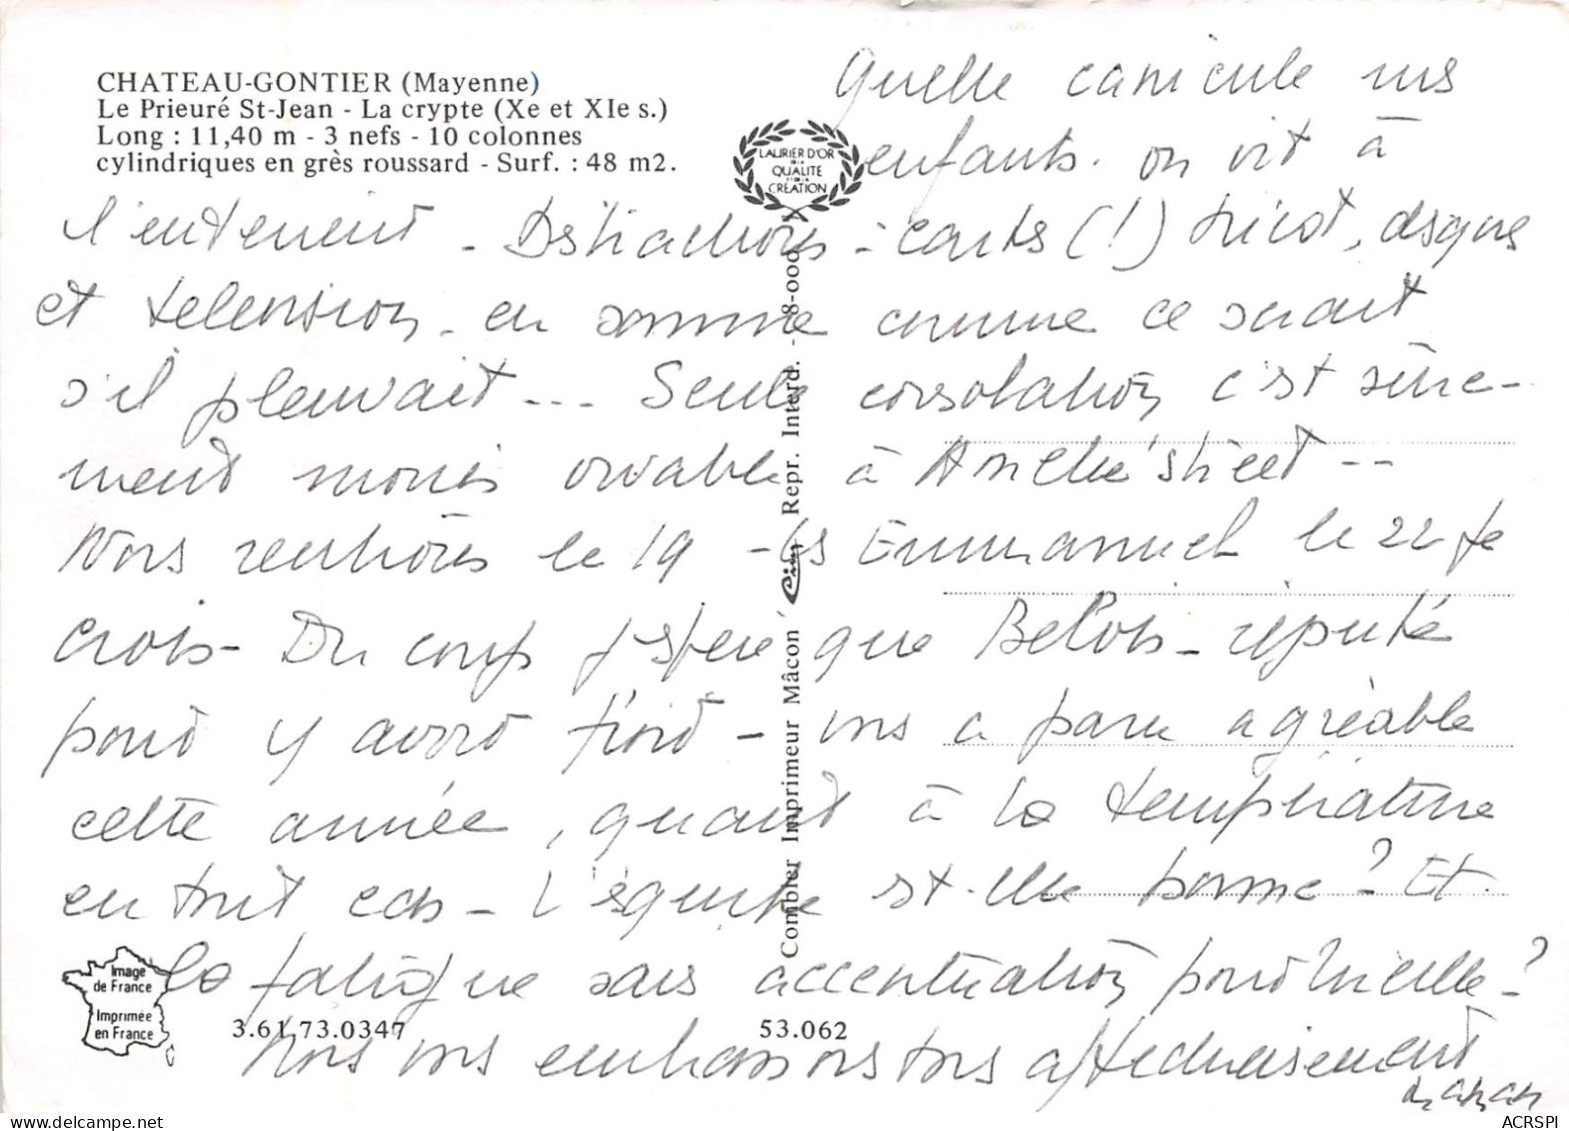 CHATEAU-GONTIER (Mayenne)
Le Prieuré St-Jean - La crypte (Xe et XIe s.)
Long : 11,40 m - 3 nefs - 10 colonnes
cylindriques en grès roussard - Surf. : 48 m2.
LAURIER D'OR
DE LA
QUALITE
ET DE LA
CREATION
Quelle canicule mes
enfants. on vit à
l'entement - Distractions : cartes (!) tricot, disques
et television - en somme comme ce serait
s'il pleuvait ... Seule consolation c'est sûre-
ment moins vivable à street --
Nous rentrons le 19 - les Emmanuel le 22 je
crois - Du coup j'espère que - réputé
pour y avoir froid - vous a paru agréable
cette année, quant à la température
en tout cas - L'équipe est-elle bonne ? Et
la fatigue sans accentuation pour Mireille ?
Nous vous embrassons tous affectueusement
maman
Combier Imprimeur Mâcon Cim Repr. Interd. - 8-000
Image
de France
Imprimée
en France
3.61.73.0347
53.062
ACRSPI